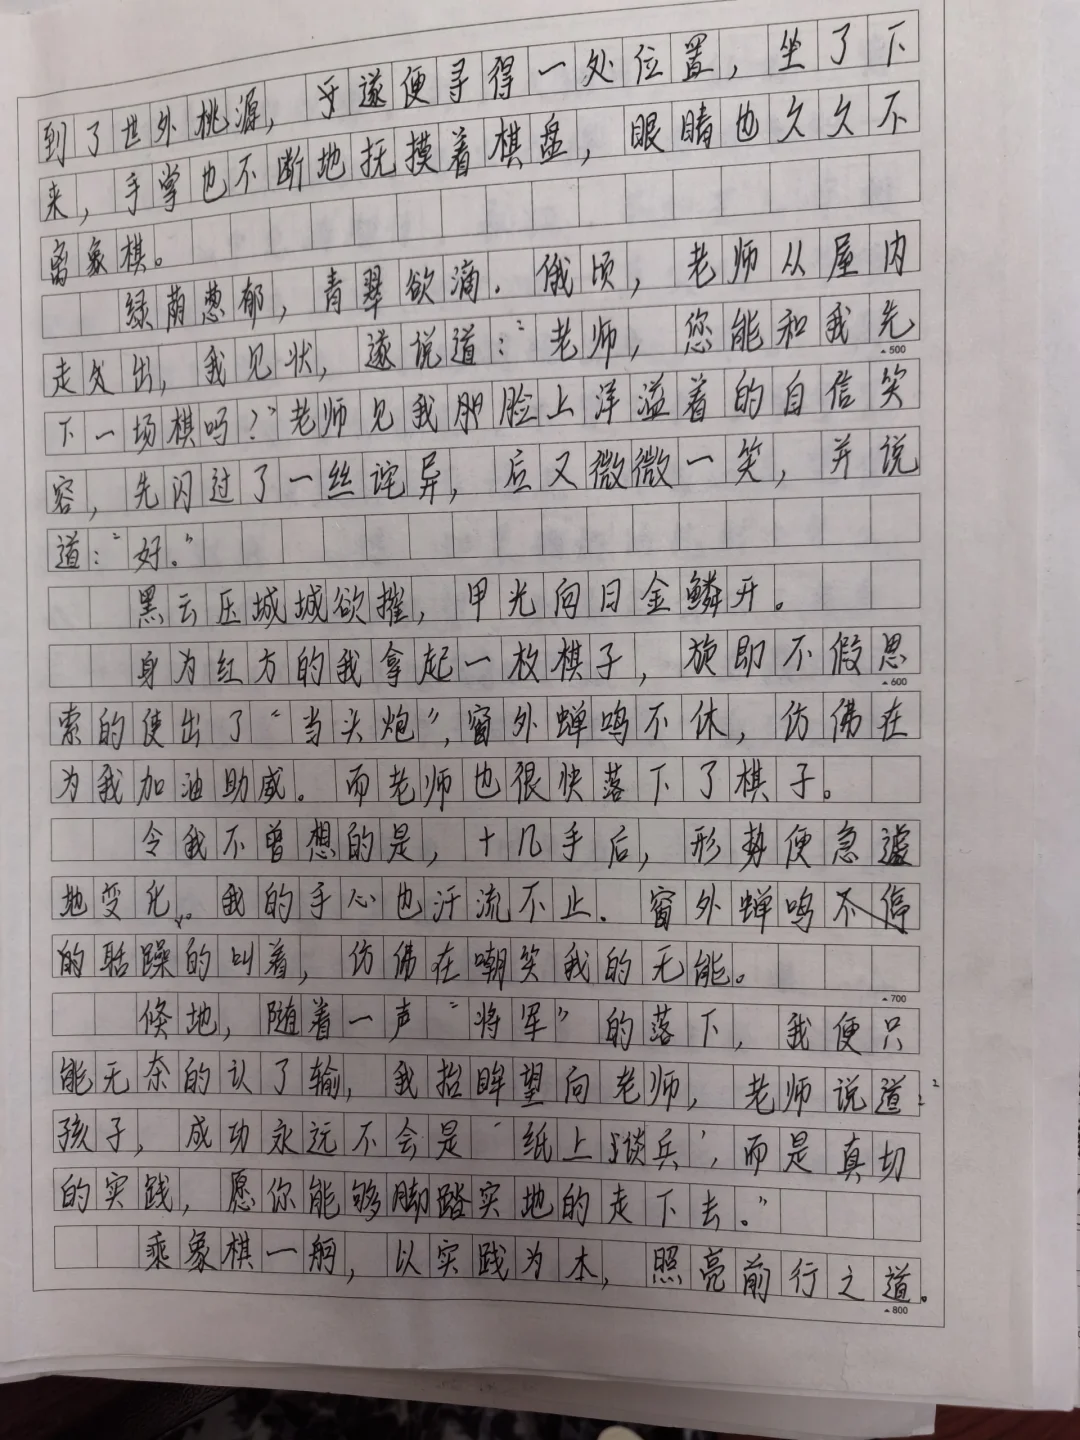 到了世外桃源，遂便寻得一处位置，坐了下
来，手掌也不断地抚摸着棋盘，眼睛也久久不
离象棋。
绿荫葱郁，青翠欲滴．俄顷，老师从屋内
走出，我见状，遂说道：“老师，您能和我先
500
下一场棋吗？”老师见我脸上洋溢着的自信笑
容，先闪过了一丝诧异，后又微微一笑，并说
道：“好。”
黑云压城城欲摧，甲光向日金鳞开。
身为红方的我拿起一枚棋子，旋即不假思
600
索的使出了“当头炮”，窗外蝉鸣不休，仿佛在
为我加油助威。而老师也很快落下了棋子。
令我不曾想的是，十几手后，形势便急遽
地变化。我的手心也汗流不止．窗外蝉鸣不停
的聒躁的叫着，仿佛在嘲笑我的无能。
700
倏地，随着一声“将军”的落下，我便只
能无奈的认了输，我抬眸望向老师，老师说道：“
孩子，成功永远不会是‘纸上谈兵’，而是真切
的实践，愿你能够脚踏实地的走下去。”
乘象棋一舸，以实践为本，照亮前行之道。
800